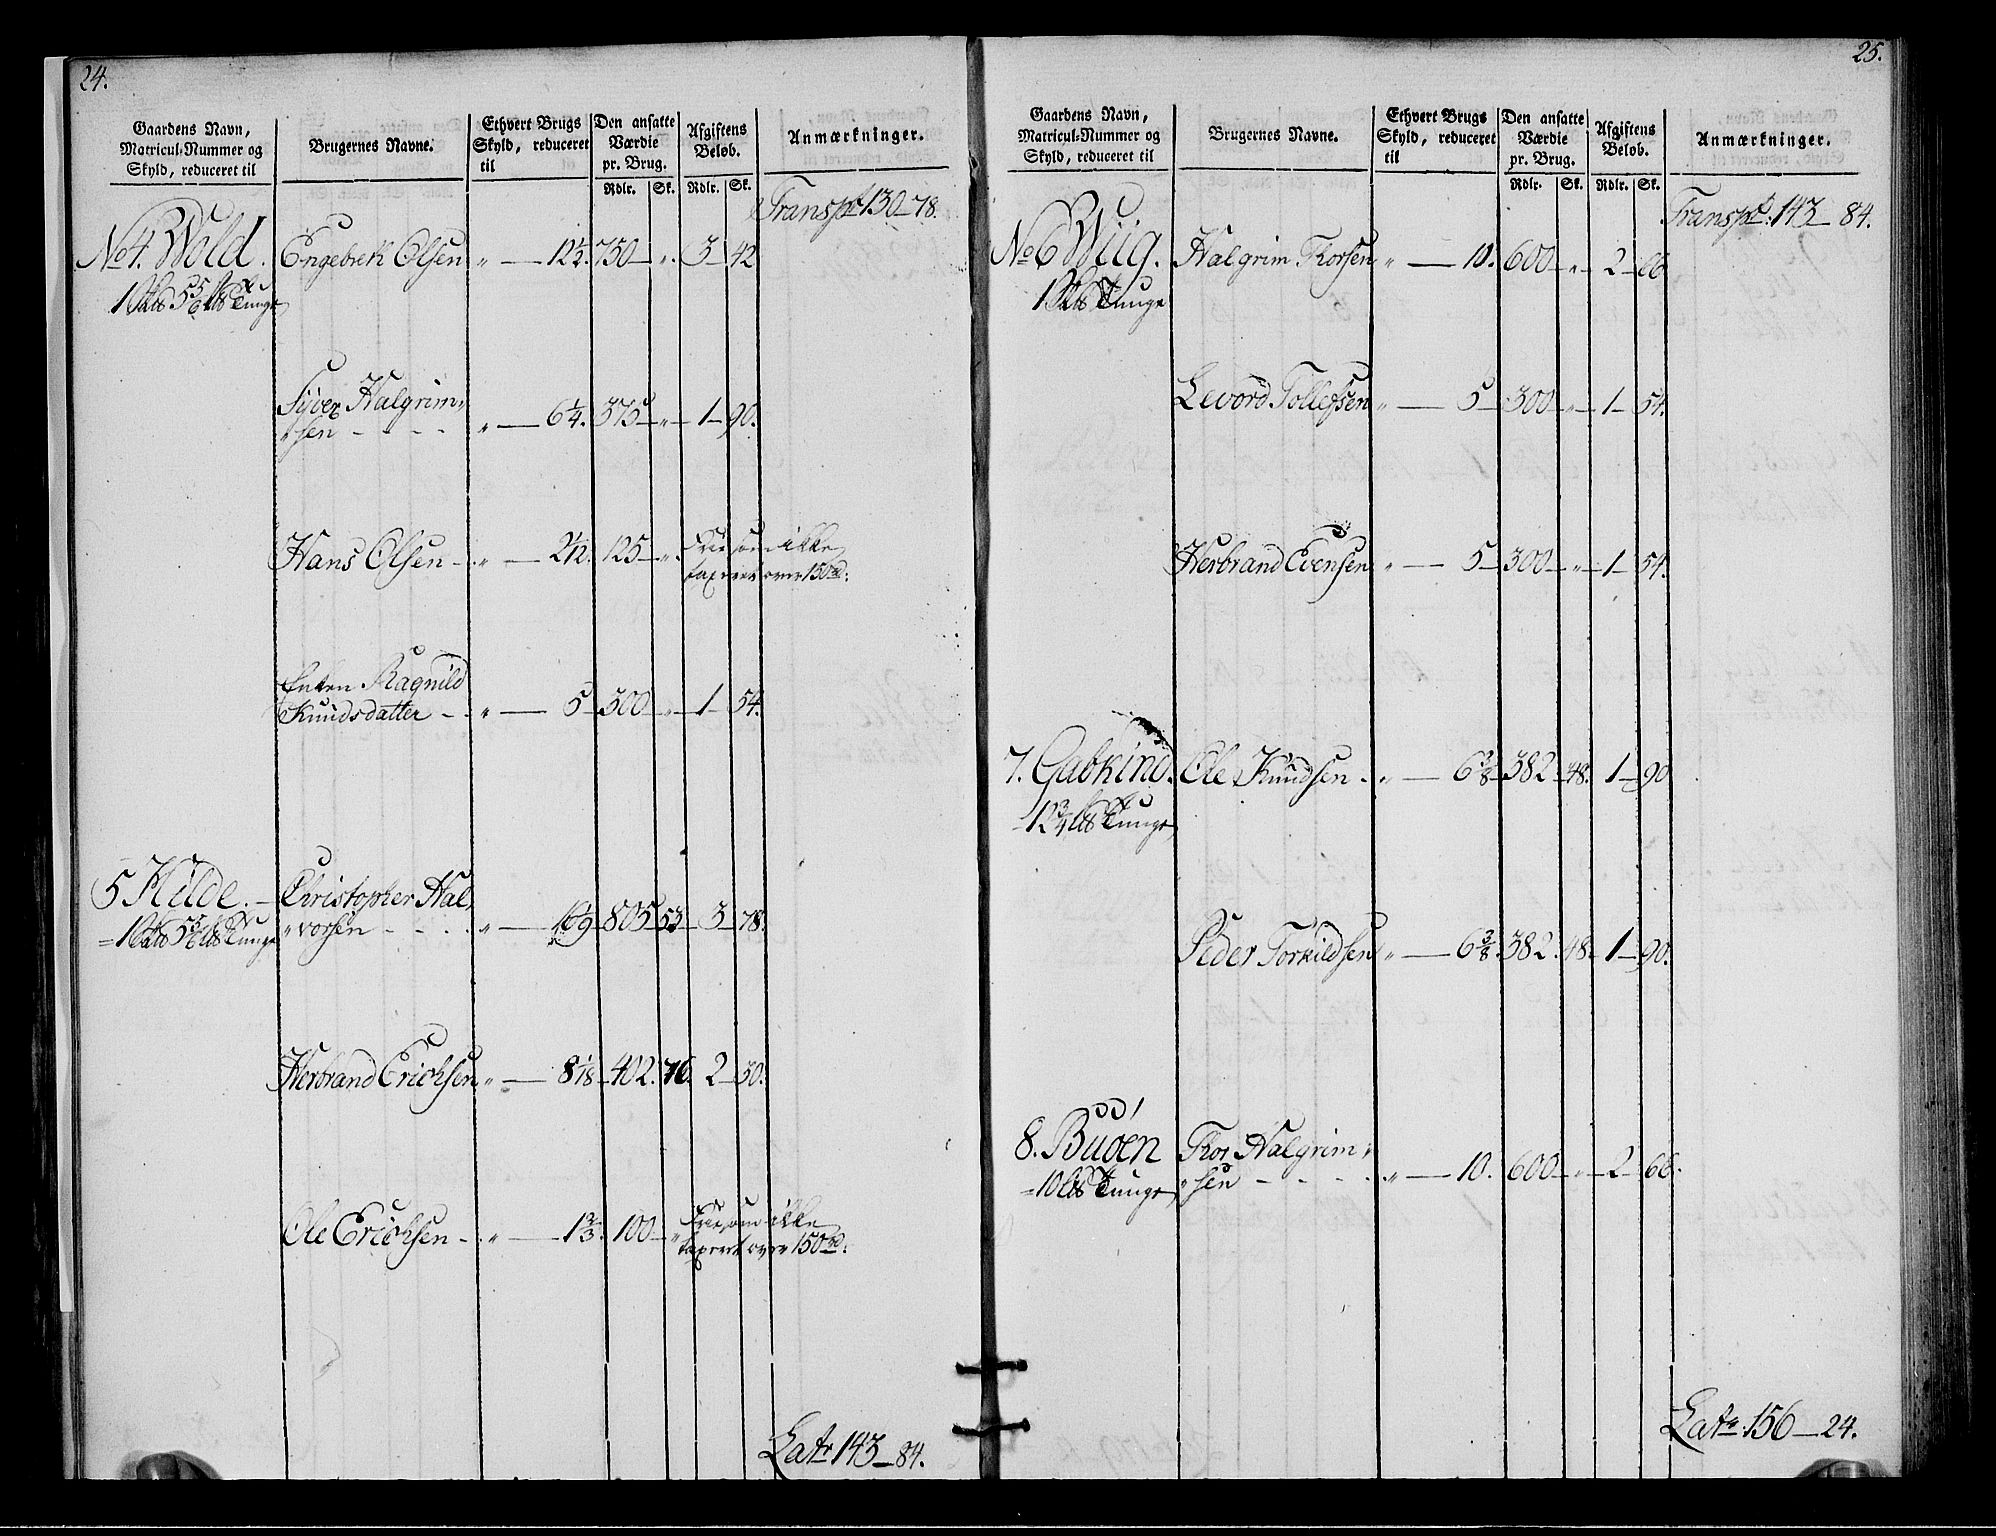 24.
Gaardens Navn, Matricul-Nummer og Skyld, reduceret til
Brugernes Navne.
Ethvert Brugs Skyld, reduceret til
Den ansatte Værdie pr. Brug.
Afgiftens Beløb.
Anmærkninger.
Rdlr. Sk. Rdlr. Sk.
Transpt 130 — 78.
No 4. Wold. Engebrek Olsen " — 12½. 750 — " 3 — 42
Syver Halgrim-
"sen - - - " — 6¼. 375 — " — 1 — 90.
Hans Olsen - " — 2 1/12. 125 — " Frie som ikke
taxeret over 150 rd:
Enken Ragnild
Knudsdatter - " — 5 — 300 — " — 1 — 54.
5 Hilde. — Christopher Hal-
"vorsen - - - " — 16 1/9 805 53 3 — 78.
Herbrand Erichsen " — 8 1/18 402. 76. 2 — 30.
Ole Erichsen - " — 1⅔. 100 — " Frie som ikke
taxeret over 150 rd:
Latr 143 — 84.
25.
Gaardens Navn, Matricul-Nummer og Skyld, reduceret til
Brugernes Navne.
Ethvert Brugs Skyld, reduceret til
Den ansatte Værdie pr. Brug.
Afgiftens Beløb.
Anmærkninger.
Rdlr. Sk. Rdlr. Sk.
Transpt: 143 — 84.
No 6 Wiig. Halgrim Thorsen " — 10. 600 — " 2 — 66
Tunge
Levord Tollefsen " — 5 — 300 — " — 1 — 54.
Herbrand Evensen " — 5 — 300 — " — 1 — 54.
7. Gabkind. Ole Knudsen - " — 6⅜ 382 — 48. 1 — 90
12¾ Tunge
Peder Torkildsen " — 6⅜. 382. 48. 1 — 90.
8. Buøen Thor Halgrim-
10 Tunge "sen - - - - " — 10. 600 — " — 2 — 66.
Latr 156 — 24.